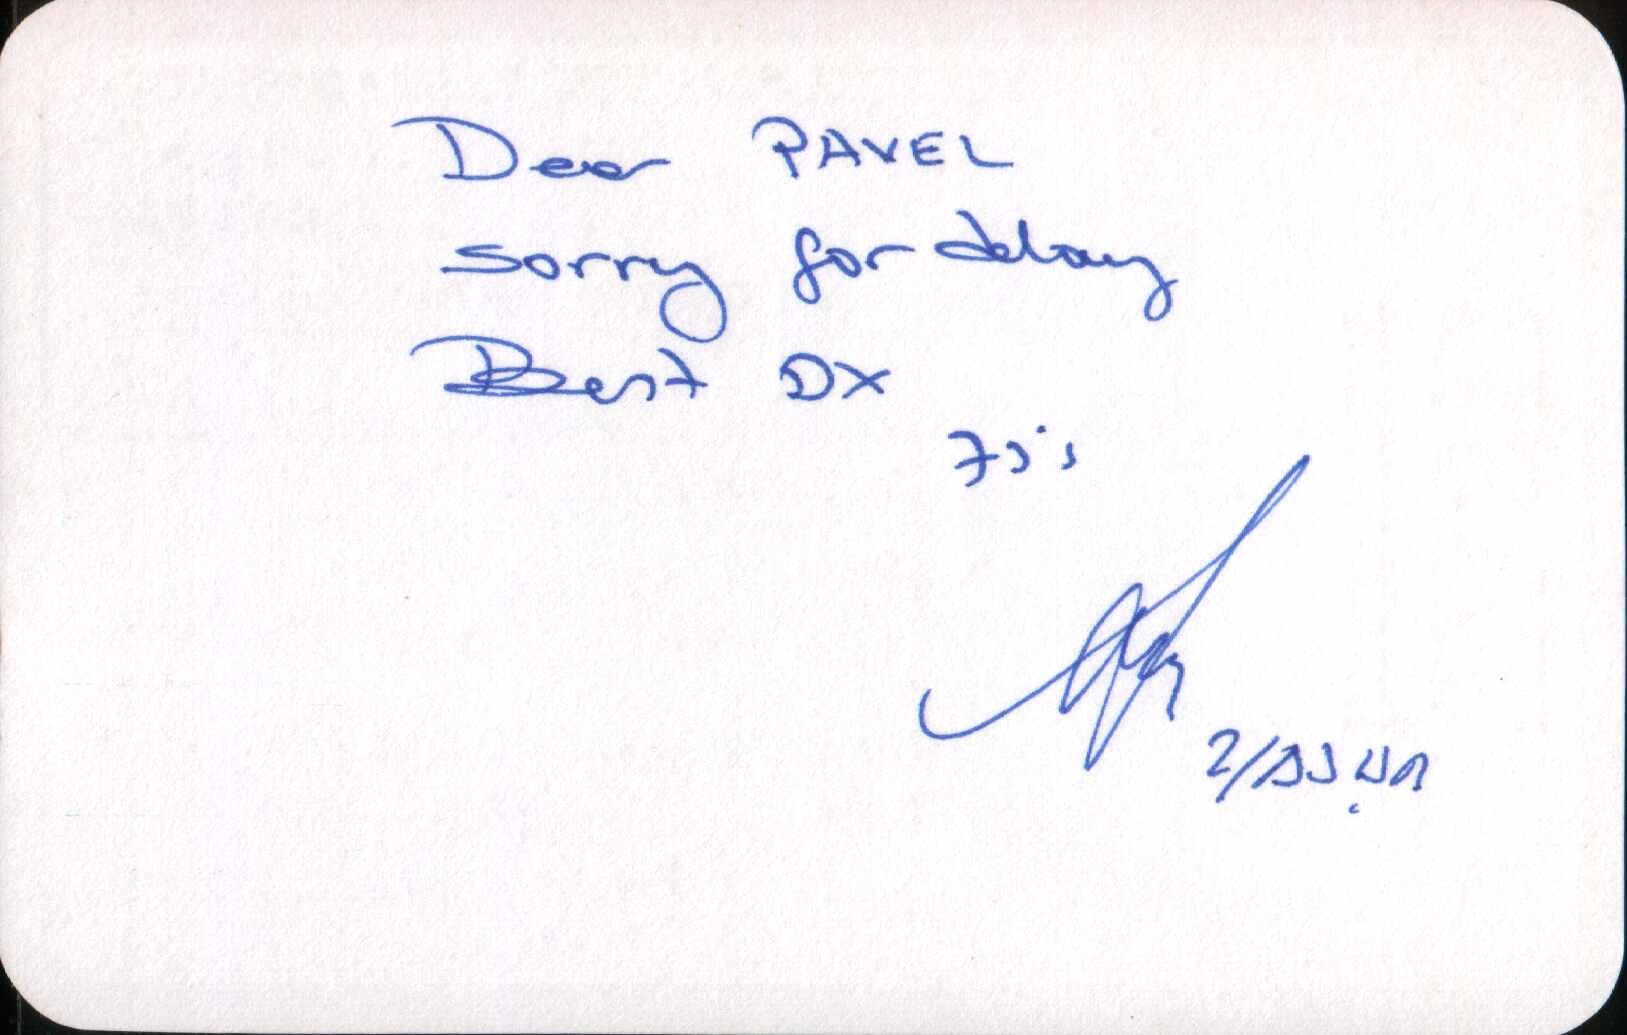 Dear PAVEL
sorry for delay
Best DX
73's